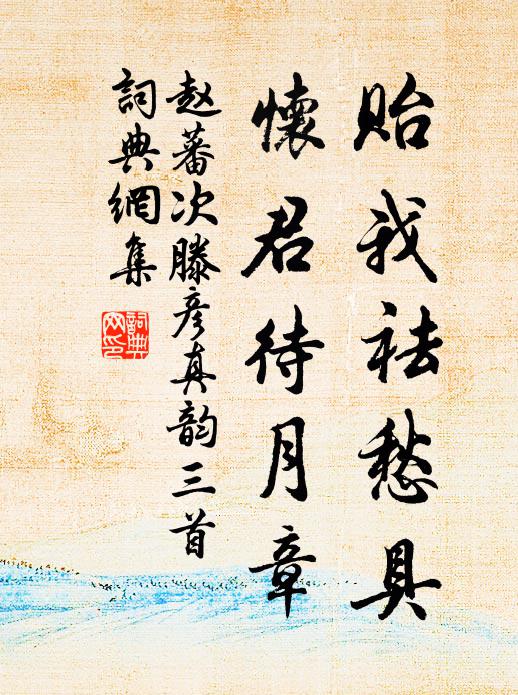 貽我祛愁具
懷君待月章
赵蕃次滕彦真韵三首
詞典網集
詞典網印